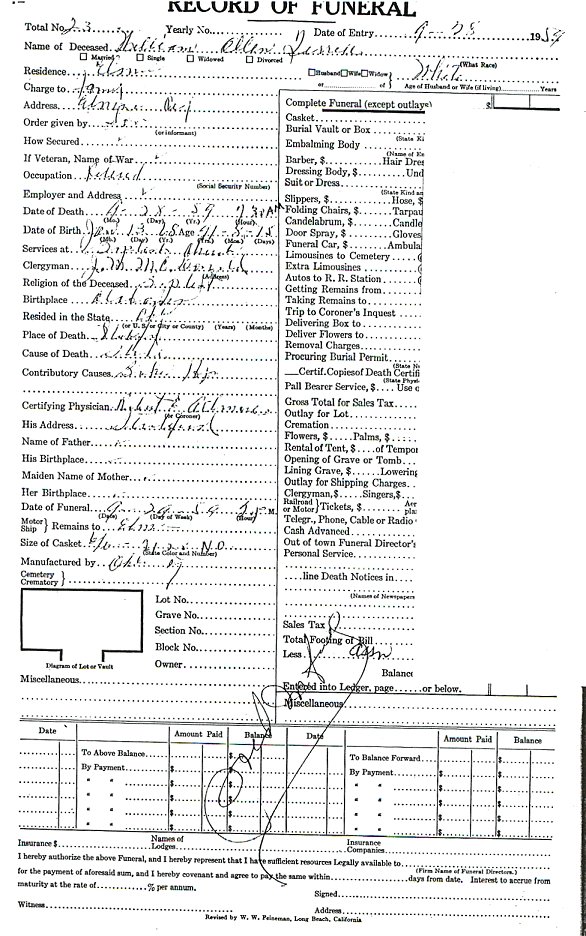 RECORD OF FUNERAL
Total No. 23 Yearly No. Date of Entry 9-28 1959
Name of Deceased William Allen
Married Single Widowed Divorced (What Race)
Residence Husband Wife Widow White
or of Age of Husband or Wife (if living) Yrs
Charge to Family
Address
Order given by
(or informant)
How Secured
If Veteran, Name of War
Occupation Retired
(Social Security Number)
Employer and Address
Date of Death 9-28-59 7:30 A
(Mo.) (Day) (Yr.) (Hour)
Date of Birth 13 68 Age 91-8-15
(Mo.) (Day) (Yr.) (Yrs.) (Mos.) (Days)
Services at Baptist Church
(Address)
Clergyman J. M. McDonald
Religion of the Deceased Baptist
Birthplace Alabama
Resided in the State
(or U. S. or City or County) (Years) (Months)
Place of Death
Cause of Death
Contributory Causes
Certifying Physician Robert E
(or Coroner)
His Address
Name of Father
His Birthplace
Maiden Name of Mother
Her Birthplace
Date of Funeral 9-29-59 M.
(Date) (Day of Week) (Hour)
Motor Ship } Remains to
Size of Casket 6/6 N.D.
(State Color and Number)
Manufactured by
Cemetery Crematory }
Lot No.
Grave No.
Section No.
Block No.
Owner
Diagram of Lot or Vault
Miscellaneous
Complete Funeral (except outlays) $
Casket
Burial Vault or Box
(State Ki
Embalming Body
(Name of E
Barber, $ Hair Dres
Dressing Body, $ Und
Suit or Dress
(State Kind an
Slippers, $ Hose, $
Folding Chairs, $ Tarpau
Candelabrum, $ Candle
Door Spray, $ Gloves
Funeral Car, $ Ambula
Limousines to Cemetery
Extra Limousines
Autos to R. R. Station
Getting Remains from
Taking Remains to
Trip to Coroner's Inquest
Delivering Box to
Deliver Flowers to
Removal Charges
Procuring Burial Permit
(State N
Certif. Copies of Death Certifi
(State Phys
Pall Bearer Service, $ Use o
Gross Total for Sales Tax
Outlay for Lot
Cremation
Flowers, $ Palms, $
Rental of Tent, $ of Tempor
Opening of Grave or Tomb
Lining Grave, $ Lowering
Outlay for Shipping Charges
Clergyman, $ Singers, $
Railroad or Motor } Tickets, $ Aer pla
Telegr., Phone, Cable or Radio
Cash Advanced
Out of town Funeral Director's
Personal Service
line Death Notices in
(Names of Newspapers
Sales Tax
Total Footing of Bill
Less Assn
Balance
Entered into Ledger, page or below.
Miscellaneous
Date Amount Paid Balance Date Amount Paid Balance
To Above Balance $ To Balance Forward $
By Payment $ $ By Payment $ $
" " $ $ " " $ $
" " $ $ " " $ $
" " $ $ " " $ $
Paid
Insurance $ Names of Lodges Insurance Companies
I hereby authorize the above Funeral, and I hereby represent that I have sufficient resources Legally available to
(Firm Name of Funeral Directors.)
for the payment of aforesaid sum, and I hereby covenant and agree to pay the same within days from date. Interest to accrue from
maturity at the rate of % per annum.
Signed
Witness Address
Revised by W. W. Feineman, Long Beach, California